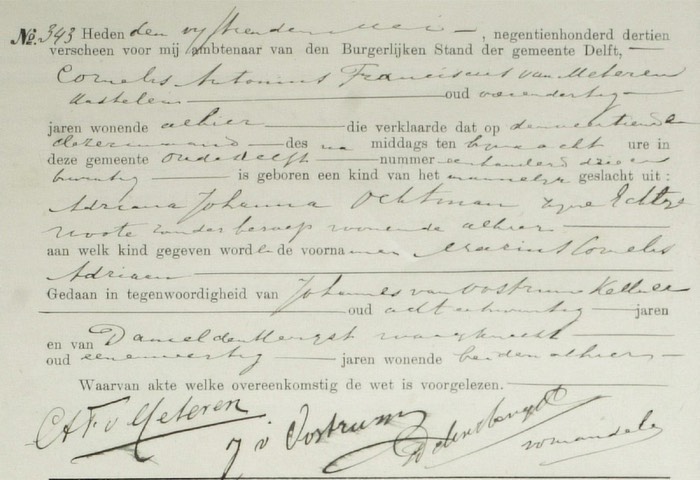 No. 343 Heden den vyftienden Mei, negentienhonderd dertien
verscheen voor mij ambtenaar van den Burgerlijken Stand der gemeente Delft,
Cornelis Antonius Franciscus van Meteren
kastelein oud vierendertig
jaren wonende alhier die verklaarde dat op den veertienden
dezer maand des na middags ten half acht ure in
deze gemeente Oude Delft nummer eenhonderd drieen
twintig is geboren een kind van het mannelyk geslacht uit:
Adriana Johanna Ochtman zyne Echtge
noote zonder beroep wonende alhier
aan welk kind gegeven word en de voorna men Marinus Cornelis
Adriaan
Gedaan in tegenwoordigheid van Johannes van Oostrum Kellner
oud achtentwintig jaren
en van Daniel den Hengst
oud eenenveertig jaren wonende beiden alhier
Waarvan akte welke overeenkomstig de wet is voorgelezen.
CAF v Meteren
J v Oostrum
D den Hengst